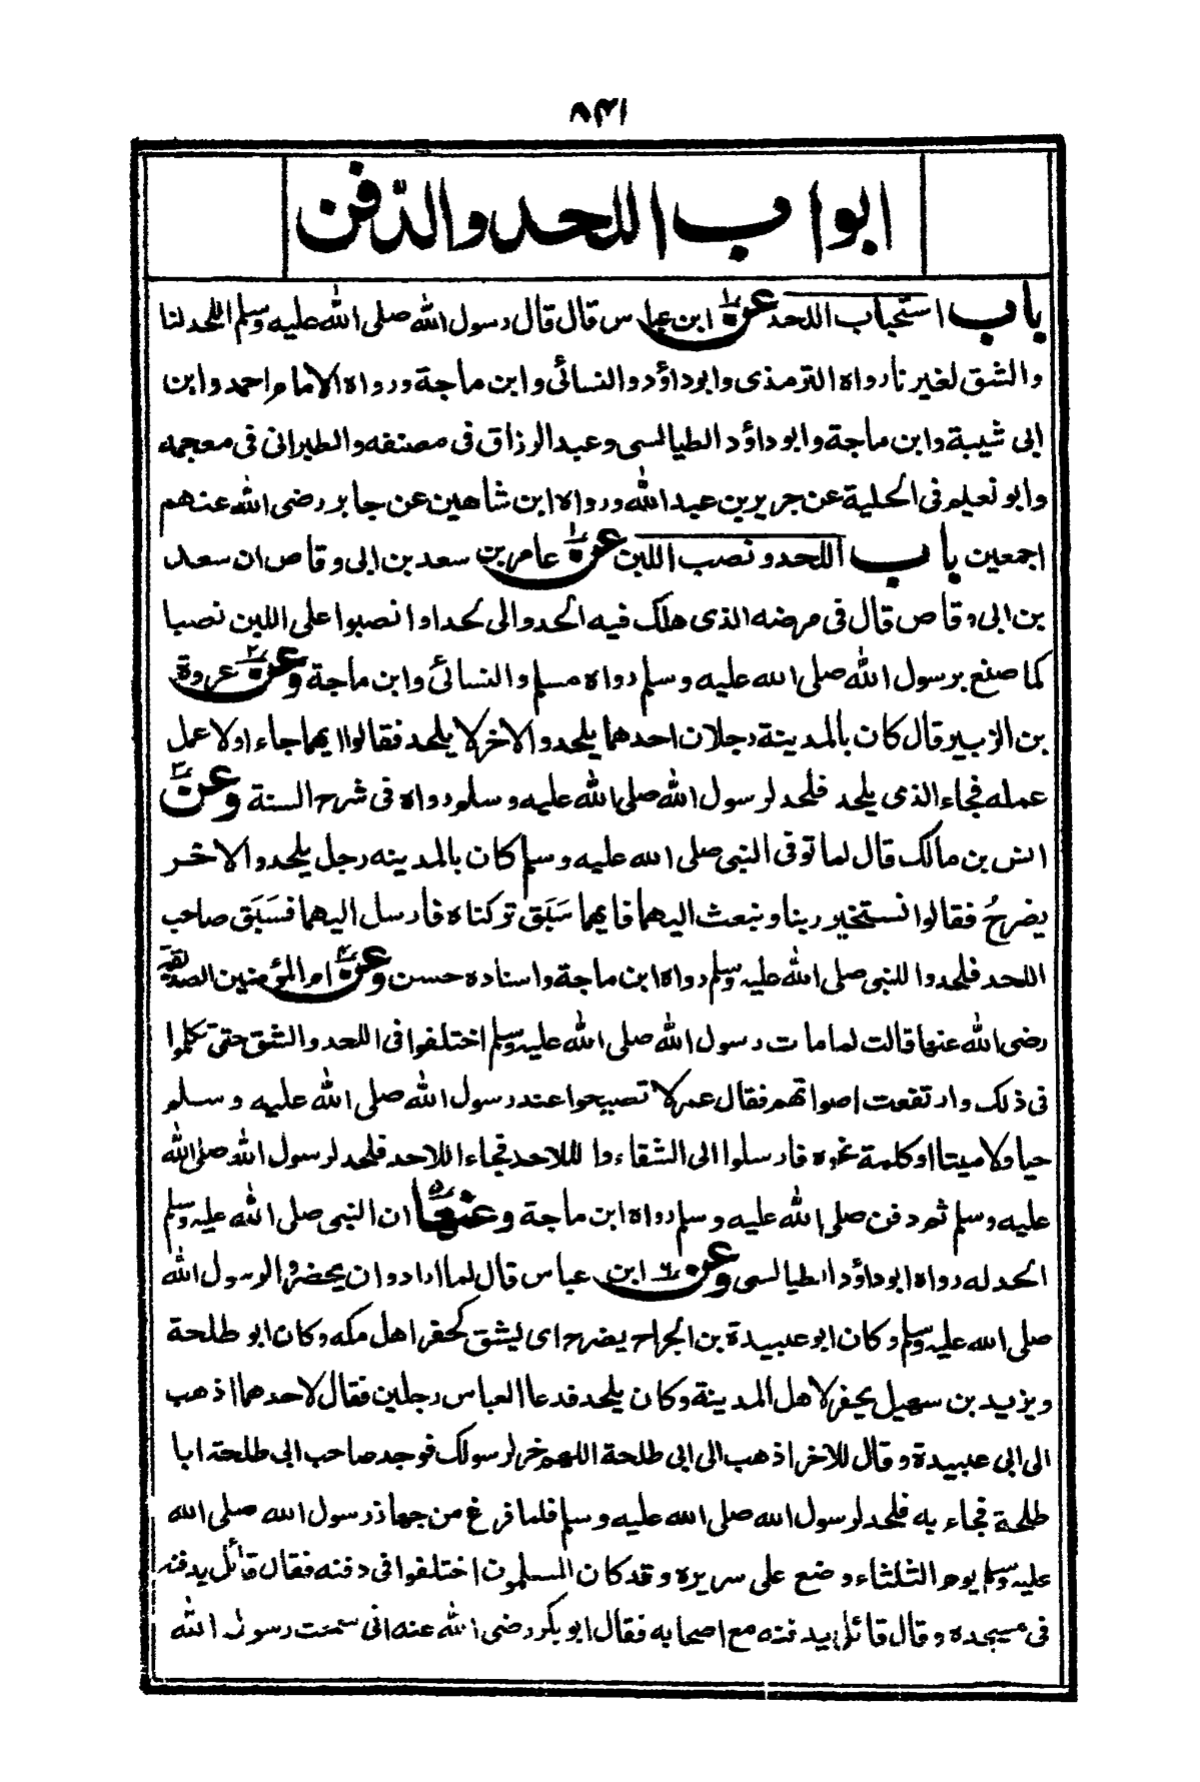 ۸۴۱
ابواب اللحد والدّفن
باب استحباب اللحد عن۱ ابن عباس قال قال رسول الله صلى الله عليه وسلم اللحد لنا
والشق لغيرنا رواه الترمذى وابوداؤد والنسائى وابن ماجة ورواه الامام احمد وابن
ابى شيبة وابن ماجة وابوداؤد الطيالسى وعبد الرزاق فى مصنفه والطبرانى فى معجمه
وابو نعيم فى الحلية عن جرير بن عبد الله ورواه ابن شاهين عن جابر رضى الله عنهم
اجمعين باب اللحد ونصب اللبن عن۱ عامر بن سعد بن ابى وقاص ان سعد
بن ابى وقاص قال فى مرضه الذى هلك فيه الحدوا لى لحدا وانصبوا على اللبن نصبا
كما صنع برسول الله صلى الله عليه وسلم رواه مسلم والنسائى وابن ماجة وعن۲ عروة
بن الزبير قال كان بالمدينة رجلان احدهما يلحد والاخر لا يلحد فقالوا ايهما جاء اولا عمل
عمله فجاء الذى يلحد فلحد لرسول الله صلى الله عليه وسلم رواه فى شرح السنة وعن۳
انس بن مالك قال لما توفى النبى صلى الله عليه وسلم كان بالمدينه رجل يلحد والاخر
يضرحُ فقالوا نستخير ربنا ونبعث اليهما فايهما سَبَق تركناه فارسل اليهما فسَبَق صاحب
اللحد فلحدوا للنبى صلى الله عليه وسلم رواه ابن ماجة واسناده حسن وعن۴ ام المؤمنين الصديقة
رضى الله عنها قالت لما مات رسول الله صلى الله عليه وسلم اختلفوا فى اللحد والشق حتى تكلموا
فى ذلك وارتفعت اصواتهم فقال عمر لا تصيحوا عند رسول الله صلى الله عليه وسلم
حيا ولا ميتا او كلمة نحوه فارسلوا الى الشقاء وا للاحد فجاء اللاحد فلحد لرسول الله صلى الله
عليه وسلم ثم دفن صلى الله عليه وسلم رواه ابن ماجة وعنها۵ ان النبى صلى الله عليه وسلم
الحد له رواه ابوداؤد الطيالسى وعن۶ ابن عباس قال لما ارادوا ان يحضروا لرسول الله
صلى الله عليه وسلم وكان ابو عبيدة بن الجراح يضرح اى ليشق كحفر اهل مكه وكان ابو طلحة
ويزيد بن سهيل يحفر لاهل المدينة وكان يلحد فدعا العباس رجلين فقال لاحدهما اذهب
الى ابى عبيدة وقال للاخر اذهب الى ابى طلحة اللهم خر لرسولك فوجد صاحب ابى طلحة ابا
طلحة فجاء به فلحد لرسول الله صلى الله عليه وسلم فلما فرغ من جهاز رسول الله صلى الله
عليه وسلم يوم الثلثاء وضع على سريره وقد كان المسلمون اختلفوا فى دفنه فقال قائل يدفنه
فى مسجده وقال قائل يدفنه مع اصحابه فقال ابو بكر رضى الله عنه انى سمعت رسول الله